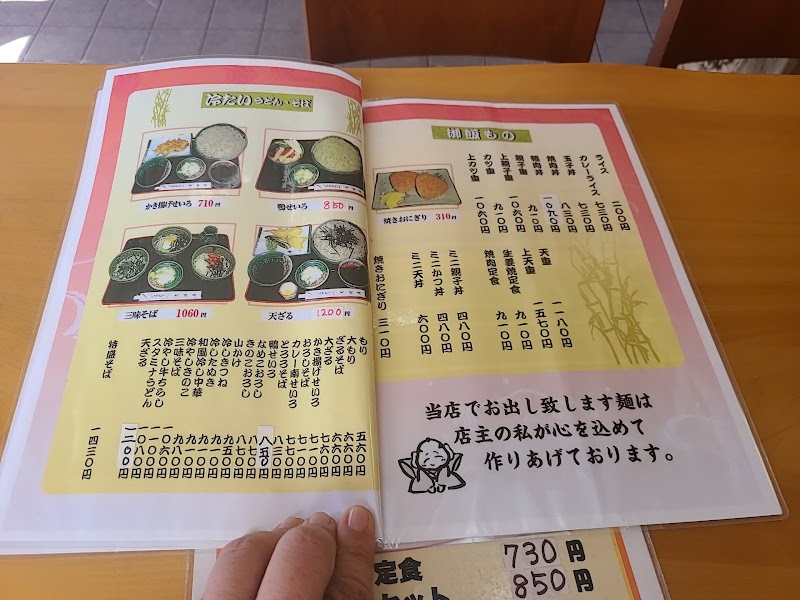 冷たいうどん・そば
かき揚げせいろ 710円
鴨せいろ 850円
三味そば 1060円
天ざる 1200円
もり 五六〇円
大もり 六六〇円
ざるそば 六六〇円
大ざる
かき揚げせいろ 七一〇円
おろしそば
とろろそば
カレー南せいろ
鴨せいろ 八五〇円
なめこおろし
きのこおろし
山かけ
冷しきつね
冷したぬき
和風冷し中華
冷やしきのこ
三味そば
冷やし牛ちらし
スタミナうどん
天ざる 一二〇〇円
特盛そば 一四三〇円
御飯もの
焼きおにぎり 310円
ライス 二〇〇円
カレーライス 七三〇円
玉子丼 七三〇円
焼肉丼 八三〇円
鴨肉丼 一〇九〇円
親子重 九一〇円
上親子重 一〇六〇円
カツ重 九一〇円
上カツ重 一〇六〇円
天重 一一八〇円
上天重 一五七〇円
生姜焼定食 九一〇円
焼肉定食 九一〇円
ミニ親子丼 四八〇円
ミニかつ丼 四八〇円
ミニ天丼 六〇〇円
焼きおにぎり 三一〇円
当店でお出し致します麺は
店主の私が心を込めて
作りあげております。
定食 730円
850円